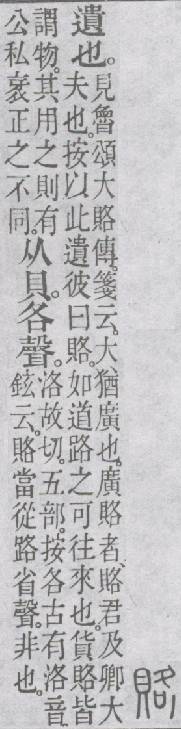 賂
遺也。見魯頌大賂傳。箋云。大猶廣也。廣賂者、賂君及卿大
夫也。按以此遺彼曰賂。如道路之可往來也。貨賂皆
謂物。其用之則有
公私衺正之不同。从貝。各聲。洛故切。五部。按各古有洛音
鉉云。賂當從路省聲。非也。